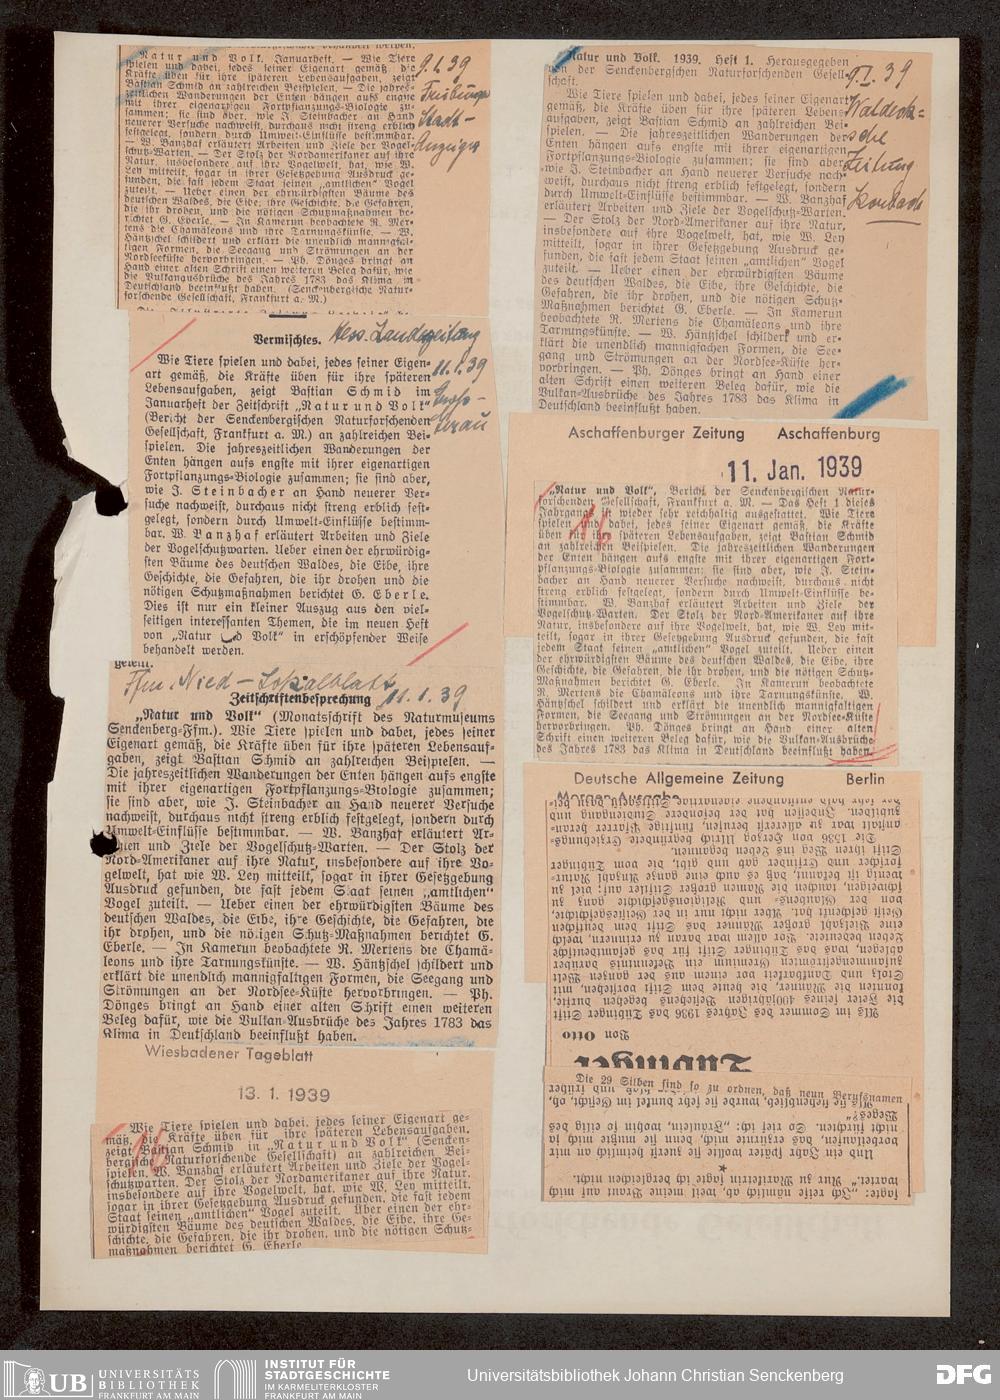 Natur und Volk. Januarheft. — Wie Tiere
spielen und dabei, jedes seiner Eigenart gemäß, die
Kräfte üben für ihre späteren Lebensaufgaben, zeigt
Bastian Schmid an zahlreichen Beispielen. — Die jahres-
zeitlichen Wanderungen der Enten hängen aufs engste
mit ihrer eigenartigen Fortpflanzungs-Biologie zu-
sammen; sie sind aber, wie J. Steinbacher an Hand
neuerer Versuche nachweist, durchaus nicht streng erblich
festgelegt, sondern durch Umwelt-Einflüsse bestimmbar.
— W. Banzhaf erläutert Arbeiten und Ziele der Vogel-
schutz-Warten. — Der Stolz der Nordamerikaner auf ihre
Natur, insbesondere auf ihre Vogelwelt, hat, wie W.
Ley mitteilt, sogar in ihrer Gesetzgebung Ausdruck ge-
funden, die fast jedem Staat seinen „amtlichen" Vogel
zuteilt. — Ueber einen der ehrwürdigsten Bäume des
deutschen Waldes, die Eibe, ihre Geschichte, die Gefahren,
die ihr drohen, und die nötigen Schutzmaßnahmen be-
richtet G. Eberle. — In Kamerun beobachtete R. Mer-
tens die Chamäleons und ihre Tarnungskünste. — W.
Häntzschel schildert und erklärt die unendlich mannigfal-
tigen Formen, die Seegang und Strömungen an der
Nordseeküste hervorbringen. — Ph. Dönges bringt an
Hand einer alten Schrift einen weiteren Beleg dafür, wie
die Vulkanausbrüche des Jahres 1783 das Klima in
Deutschland beeinflußt haben. (Senckenbergische Natur-
forschende Gesellschaft, Frankfurt a. M.)
9.1.39
Stadt-
Anzeiger
Vermischtes.
Hess. Landeszeitung
11.1.39
Gross-
Gerau
Wie Tiere spielen und dabei, jedes seiner Eigen-
art gemäß, die Kräfte üben für ihre späteren
Lebensaufgaben, zeigt Bastian Schmid im
Januarheft der Zeitschrift „Natur und Volk"
(Bericht der Senckenbergischen Naturforschenden
Gesellschaft, Frankfurt a. M.) an zahlreichen Bei-
spielen. Die jahreszeitlichen Wanderungen der
Enten hängen aufs engste mit ihrer eigenartigen
Fortpflanzungs-Biologie zusammen; sie sind aber,
wie J. Steinbacher an Hand neuerer Ver-
suche nachweist, durchaus nicht streng erblich fest-
gelegt, sondern durch Umwelt-Einflüsse bestimm-
bar. W. Banzhaf erläutert Arbeiten und Ziele
der Vogelschutzwarten. Ueber einen der ehrwürdig-
sten Bäume des deutschen Waldes, die Eibe, ihre
Geschichte, die Gefahren, die ihr drohen und die
nötigen Schutzmaßnahmen berichtet G. Eberle.
Dies ist nur ein kleiner Auszug aus den viel-
seitigen interessanten Themen, die im neuen Heft
von „Natur und Volk" in erschöpfender Weise
behandelt werden.
Ffm. Nied - Lokalblatt
11.1.39
Zeitschriftenbesprechung
„Natur und Volk" (Monatsschrift des Naturmuseums
Senckenberg-Ffm.). Wie Tiere spielen und dabei, jedes seiner
Eigenart gemäß, die Kräfte üben für ihre späteren Lebensauf-
gaben, zeigt Bastian Schmid an zahlreichen Beispielen. —
Die jahreszeitlichen Wanderungen der Enten hängen aufs engste
mit ihrer eigenartigen Fortpflanzungs-Biologie zusammen;
sie sind aber, wie J. Steinbacher an Hand neuerer Versuche
nachweist, durchaus nicht streng erblich festgelegt, sondern durch
Umwelt-Einflüsse bestimmbar. — W. Banzhaf erläutert Ar-
beiten und Ziele der Vogelschutz-Warten. — Der Stolz der
Nord-Amerikaner auf ihre Natur, insbesondere auf ihre Vo-
gelwelt, hat wie W. Ley mitteilt, sogar in ihrer Gesetzgebung
Ausdruck gefunden, die fast jedem Staat seinen „amtlichen"
Vogel zuteilt. — Ueber einen der ehrwürdigsten Bäume des
deutschen Waldes, die Eibe, ihre Geschichte, die Gefahren, die
ihr drohen, und die nötigen Schutz-Maßnahmen berichtet G.
Eberle. — In Kamerun beobachtete R. Mertens die Chamä-
leons und ihre Tarnungskünste. — W. Häntzschel schildert und
erklärt die unendlich mannigfaltigen Formen, die Seegang und
Strömungen an der Nordsee-Küste hervorbringen. — Ph.
Dönges bringt an Hand einer alten Schrift einen weiteren
Beleg dafür, wie die Vulkan-Ausbrüche des Jahres 1783 das
Klima in Deutschland beeinflußt haben.
Wiesbadener Tageblatt
13. 1. 1939
16
Wie Tiere spielen und dabei, jedes seiner Eigenart ge-
mäß, die Kräfte üben für ihre späteren Lebensaufgaben,
zeigt Bastian Schmid in „Natur und Volk" (Sencken-
bergische Naturforschende Gesellschaft) an zahlreichen Bei-
spielen. W. Banzhaf erläutert Arbeiten und Ziele der Vogel-
schutzwarten. Der Stolz der Nordamerikaner auf ihre Natur,
insbesondere auf ihre Vogelwelt, hat, wie W. Ley mitteilt,
sogar in ihrer Gesetzgebung Ausdruck gefunden, die fast jedem
Staat seinen „amtlichen" Vogel zuteilt. Über einen der ehr-
würdigsten Bäume des deutschen Waldes, die Eibe, ihre Ge-
schichte, die Gefahren, die ihr drohen, und die nötigen Schutz-
maßnahmen berichtet G. Eberle.
Natur und Volk. 1939. Heft 1. Herausgegeben
von der Senckenbergischen Naturforschenden Gesell-
schaft.
Wie Tiere spielen und dabei, jedes seiner Eigenart
gemäß, die Kräfte üben für ihre späteren Lebens-
aufgaben, zeigt Bastian Schmid an zahlreichen Bei-
spielen. — Die jahreszeitlichen Wanderungen der
Enten hängen aufs engste mit ihrer eigenartigen
Fortpflanzungs-Biologie zusammen; sie sind aber,
wie J. Steinbacher an Hand neuerer Versuche nach-
weist, durchaus nicht streng erblich festgelegt, sondern
durch Umwelt-Einflüsse bestimmbar. — W. Banzhaf
erläutert Arbeiten und Ziele der Vogelschutz-Warten.
— Der Stolz der Nord-Amerikaner auf ihre Natur,
insbesondere auf ihre Vogelwelt, hat, wie W. Ley
mitteilt, sogar in ihrer Gesetzgebung Ausdruck ge-
funden, die fast jedem Staat seinen „amtlichen" Vogel
zuteilt. — Ueber einen der ehrwürdigsten Bäume
des deutschen Waldes, die Eibe, ihre Geschichte, die
Gefahren, die ihr drohen, und die nötigen Schutz-
Maßnahmen berichtet G. Eberle. — In Kamerun
beobachtete R. Mertens die Chamäleons und ihre
Tarnungskünste. — W. Häntzschel schildert und er-
klärt die unendlich mannigfachen Formen, die See-
gang und Strömungen an der Nordsee-Küste her-
vorbringen. — Ph. Dönges bringt an Hand einer
alten Schrift einen weiteren Beleg dafür, wie die
Vulkan-Ausbrüche des Jahres 1783 das Klima in
Deutschland beeinflußt haben.
9.I.39
Waldeck-
sche
Zeitung
Korbach
Aschaffenburger Zeitung Aschaffenburg
11. Jan. 1939
16
„Natur und Volk", Bericht der Senckenbergischen Natur-
forschenden Gesellschaft, Frankfurt a. M. — Das Heft 1 dieses
Jahrgangs ist wieder sehr reichhaltig ausgestattet. Wie Tiere
spielen und dabei, jedes seiner Eigenart gemäß, die Kräfte
üben für ihre späteren Lebensaufgaben, zeigt Bastian Schmid
an zahlreichen Beispielen. Die jahreszeitlichen Wanderungen
der Enten hängen aufs engste mit ihrer eigenartigen Fort-
pflanzungs-Biologie zusammen; sie sind aber, wie J. Stein-
bacher an Hand neuerer Versuche nachweist, durchaus nicht
streng erblich festgelegt, sondern durch Umwelt-Einflüsse be-
stimmbar. W. Banzhaf erläutert Arbeiten und Ziele der
Vogelschutz-Warten. Der Stolz der Nord-Amerikaner auf ihre
Natur, insbesondere auf ihre Vogelwelt, hat, wie W. Ley mit-
teilt, sogar in ihrer Gesetzgebung Ausdruck gefunden, die fast
jedem Staat seinen „amtlichen" Vogel zuteilt. Ueber einen
der ehrwürdigsten Bäume des deutschen Waldes, die Eibe, ihre
Geschichte, die Gefahren, die ihr drohen und die nötigen Schutz-
Maßnahmen berichtet G. Eberle. In Kamerun beobachtete
R. Mertens die Chamäleons und ihre Tarnungskünste. W.
Häntzschel schildert und erklärt die unendlich mannigfaltigen
Formen, die Seegang und Strömungen an der Nordsee-Küste
hervorbringen. Ph. Dönges bringt an Hand einer alten
Schrift einen weiteren Beleg dafür, wie die Vulkan-Ausbrüche
des Jahres 1783 das Klima in Deutschland beeinflußt haben.
Deutsche Allgemeine Zeitung Berlin
Tübinger
Von Otto
Als im Sommer des Jahres 1936 das Tübinger Stift
die Feier seines 400jährigen Bestehens begehen durfte,
konnten die Männer, die heute dem Stift vorstehen, mit
Stolz und Dankbarkeit vor einem aus der ganzen Welt
zusammengeströmten Gremium ein Bekenntnis darüber
ablegen, was das Tübinger Stift für das gesamtdeutsche
Leben bedeutete. Vor allem war daran zu erinnern, welch
eine Vielzahl großer Männer das Stift dem deutschen
Geist geschenkt hat. Aber nicht nur in der Geistesgeschichte,
von der Glaubens- und Religionsgeschichte ganz zu
schweigen, tauchen die Namen großer Stiftler auf; viel zu
wenig ist bekannt, daß es auch eine ganze Anzahl Natur-
forscher und Erfinder gab und gibt, die vom Tübinger
Stift ihren Weg ins Leben begannen.
Die 29 Silben sind so zu ordnen, daß neun Berufsnamen
UB UNIVERSITÄTS
BIBLIOTHEK
FRANKFURT AM MAIN
INSTITUT FÜR
STADTGESCHICHTE
IM KARMELITERKLOSTER
FRANKFURT AM MAIN
Universitätsbibliothek Johann Christian Senckenberg
DFG